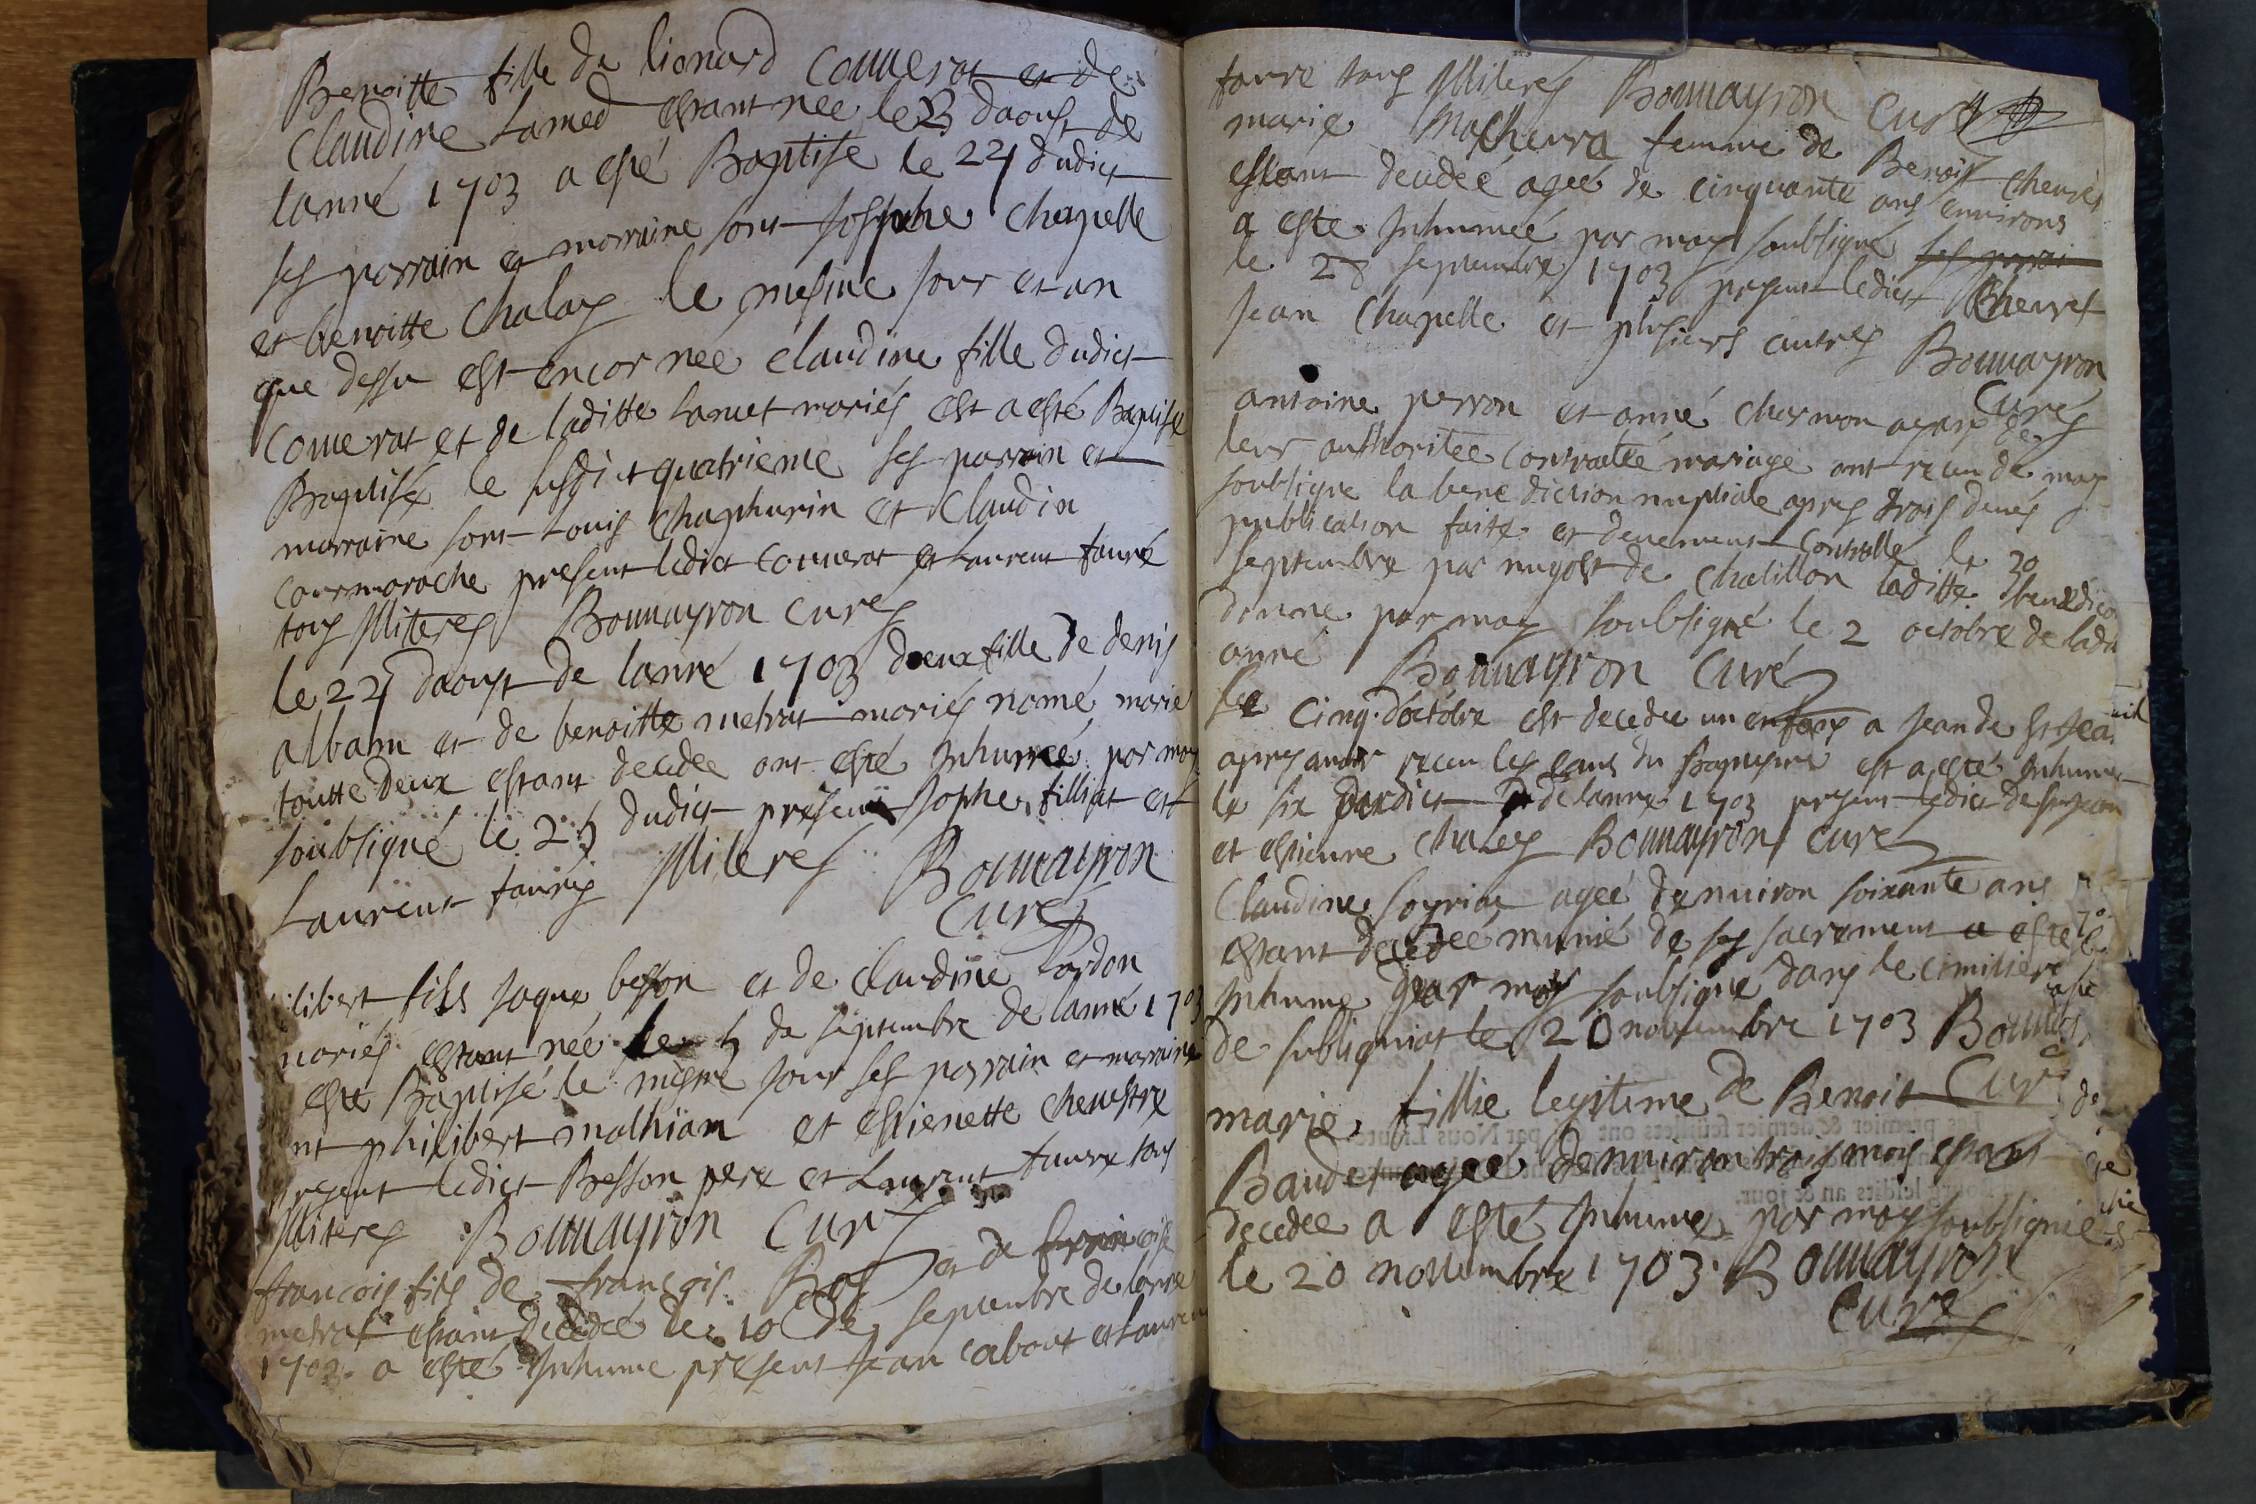 Benoitte fille de lionard Couuerat et de
Claudine Lamed estant née le 23 daoust de
lanné 1703 a esté Baptisé le 24 dudict
ses parrain et marraine sont Josphe Chapelle
et benoitte Chalay le mesme jour et an
que dessu est encor née claudine fille dudict
Couuerat et de laditte Lamet mariés est a esté Baptisé
Baptisé le susdict quatrieme ses parrain et
marraine sont Louis Chaphurin et Claudin
Cormoroche present ledict Couuerat et Laurent fauré
tous Illiteres Bounayron Cures
le 24 daoust de lanné 1703 deux fille de denis
albam et de benoitte metrat mariés nomé marie
toutte deux estant decedée ont esté Inhumeé par moy
soubsigné le 25 dudict present Jophe filliat et
Laurent fauris Illiteres Bounayron
Curé
ilibert fils Jaque besson et de claudine Pordon
mariés estant née le 5 de septembre de lanné 1703
esté Baptisé le mesme jour ses parrain et marraine
nt philibert mathian et estienette chenestre
present ledict Besson pere et Laurent faure tous
Illiteres Bounayron Curé
francois fils de francois Bos et de francoise
metrat estant decedeé le 10 de septembre de lanné
1703 a esté Inhume present Jean cabout et Laurent
faure tous Illiterés Bounayron Curé
marie Macheura femme de Benoist Cheurés
estant decedeé ageé de cinquante ans environs
a este Inhumeé par moy soubsigné ses parai
le 28 septembre 1703 present ledict Cheuret
Jean Chapelle et plusiers autres Bounayron
Curés
antoine perron et anné charmon ayant de
leur authoritée Contractée mariage ont receu de moy
soubsigne la bene diction nuptiale apres trois deues
publication faite et deuement Controllé le 30
septembre par mugost de Chatillon laditte benedic
donne par moy soubsigné le 2 octobre de ladi
anné Bounayron Curé
le cinq doctobre est decedée un enfant a Jean de St Jean
apres auoir receu les eaus du Baptesme est a esté Inhume
le six dudict de lanné 1703 present ledict de St Jean
et estienne Chaley Bounayron Cure
Claudine soyriat ageé denuiron soixante ans
estant decedeé munie de ses sacrement a esté
Inhume par moy soubsigné dans le cimitiere
de suligniat le 20 nouembre 1703 Bounay
Curé
marie fillie legitime de Benoit
Baudet ageé denuiron trois mois estant
decedee a esté Inhume par moy soubsignié
le 20 nouembre 1703 Bounayron
Curé